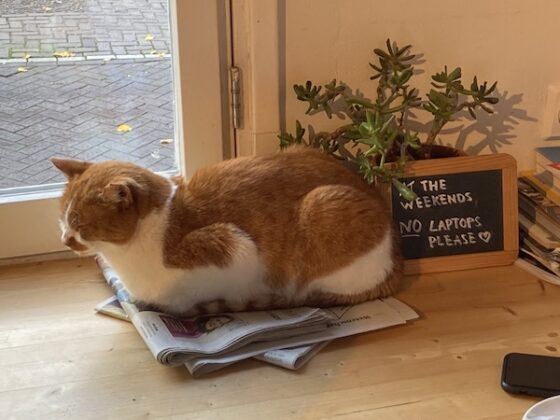 AT THE
WEEKENDS
NO LAPTOPS
PLEASE ♡